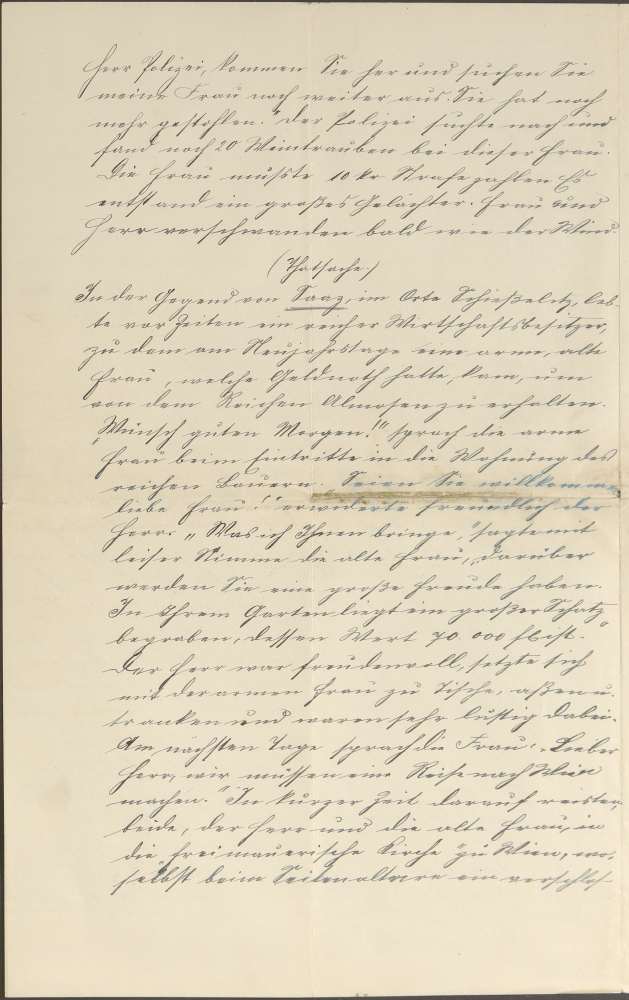 Herr Polizei, kommen Sie her und suchen Sie
meine Frau noch weiter aus. Sie hat noch
mehr gestohlen." Der Polizei suchte nach und
fand noch 20 Weintrauben bei dieser Frau.
Die Frau mußte 10 kr Strafe zahlen. Es
entstand ein großes Gelächter. Frau und
Herr verschwanden bald wie der Wind.
(Thatsache.)
In der Gegend von Saaz, im Orte Schießelitz, leb-
te vor Zeiten ein reicher Wirtschaftsbesitzer,
zu dem am Neujahrstage eine arme, alte
Frau, welche Geldnoth hatte, kam, um
von dem Reichen Almosen zu erhalten.
„Wünsch guten Morgen!" sprach die arme
Frau beim Eintritte in die Wohnung des
reichen Bauern. „Seien Sie willkommen
liebe Frau!" erwiderte freundlich der
Herr. „Was ich Ihnen bringe," sagte mit
leiser Stimme die alte Frau, „darüber
werden Sie eine große Freude haben.
In Ihrem Garten liegt ein großer Schatz
begraben, dessen Wert 70 000 fl ist."
Der Herr war freudenvoll, setzte sich
mit der armen Frau zu Tische, aßen u.
tranken und waren sehr lustig dabei.
Am nächsten Tage sprach die Frau: „Lieber
Herr, wir müssen eine Reise nach Wien
machen." In kurzer Zeit darauf reisten
beide, der Herr und die alte Frau, in
die freimaurerische Kirche zu Wien, wo-
selbst beim Seitenaltare ein verschlos-